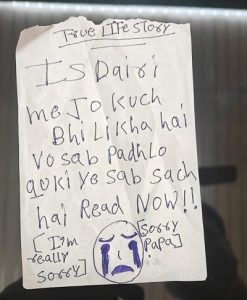 TRUE LIFE STORY
IS Dairi
me Jo kuch
Bhi likha hai
vo sab Padhlo
quki ye sab sach
hai Read NOW!!
[I'm really sorry]
[sorry PaPa]